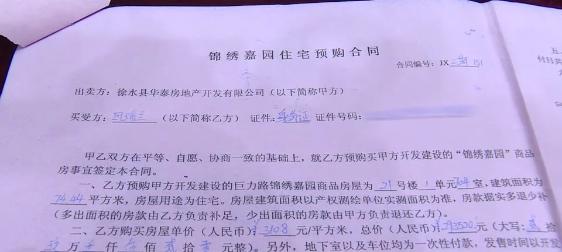 锦绣嘉园住宅预购合同
合同编号：JX
出卖方：徐水县华泰房地产开发有限公司（以下简称甲方）
买受方：（以下简称乙方）证件：身份证 证件号码：
甲乙双方在平等、自愿、协商一致的基础上，就乙方预购买甲方开发建设的“锦绣嘉园”商品
房事宜签定本合同。
一、乙方预购甲方开发建设的巨力路锦绣嘉园商品房屋为 21 号楼 1 单元 室，建筑面积为
74.44 平方米，房屋用途为住宅。房屋建筑面积以产权测绘单位实测面积为准，房款据实多退少补
（多出面积的房款由乙方负责补足，少出面积的房款由甲方负责退还乙方）。
二、乙方购买房屋单价（人民币）¥ 3108 元/平方米，总价（人民币）¥ 元（大写：贰拾
万 仟 佰 拾 元整）。另外，地下室以及车位均为一次性付款，发售时间以开发
五
付日共